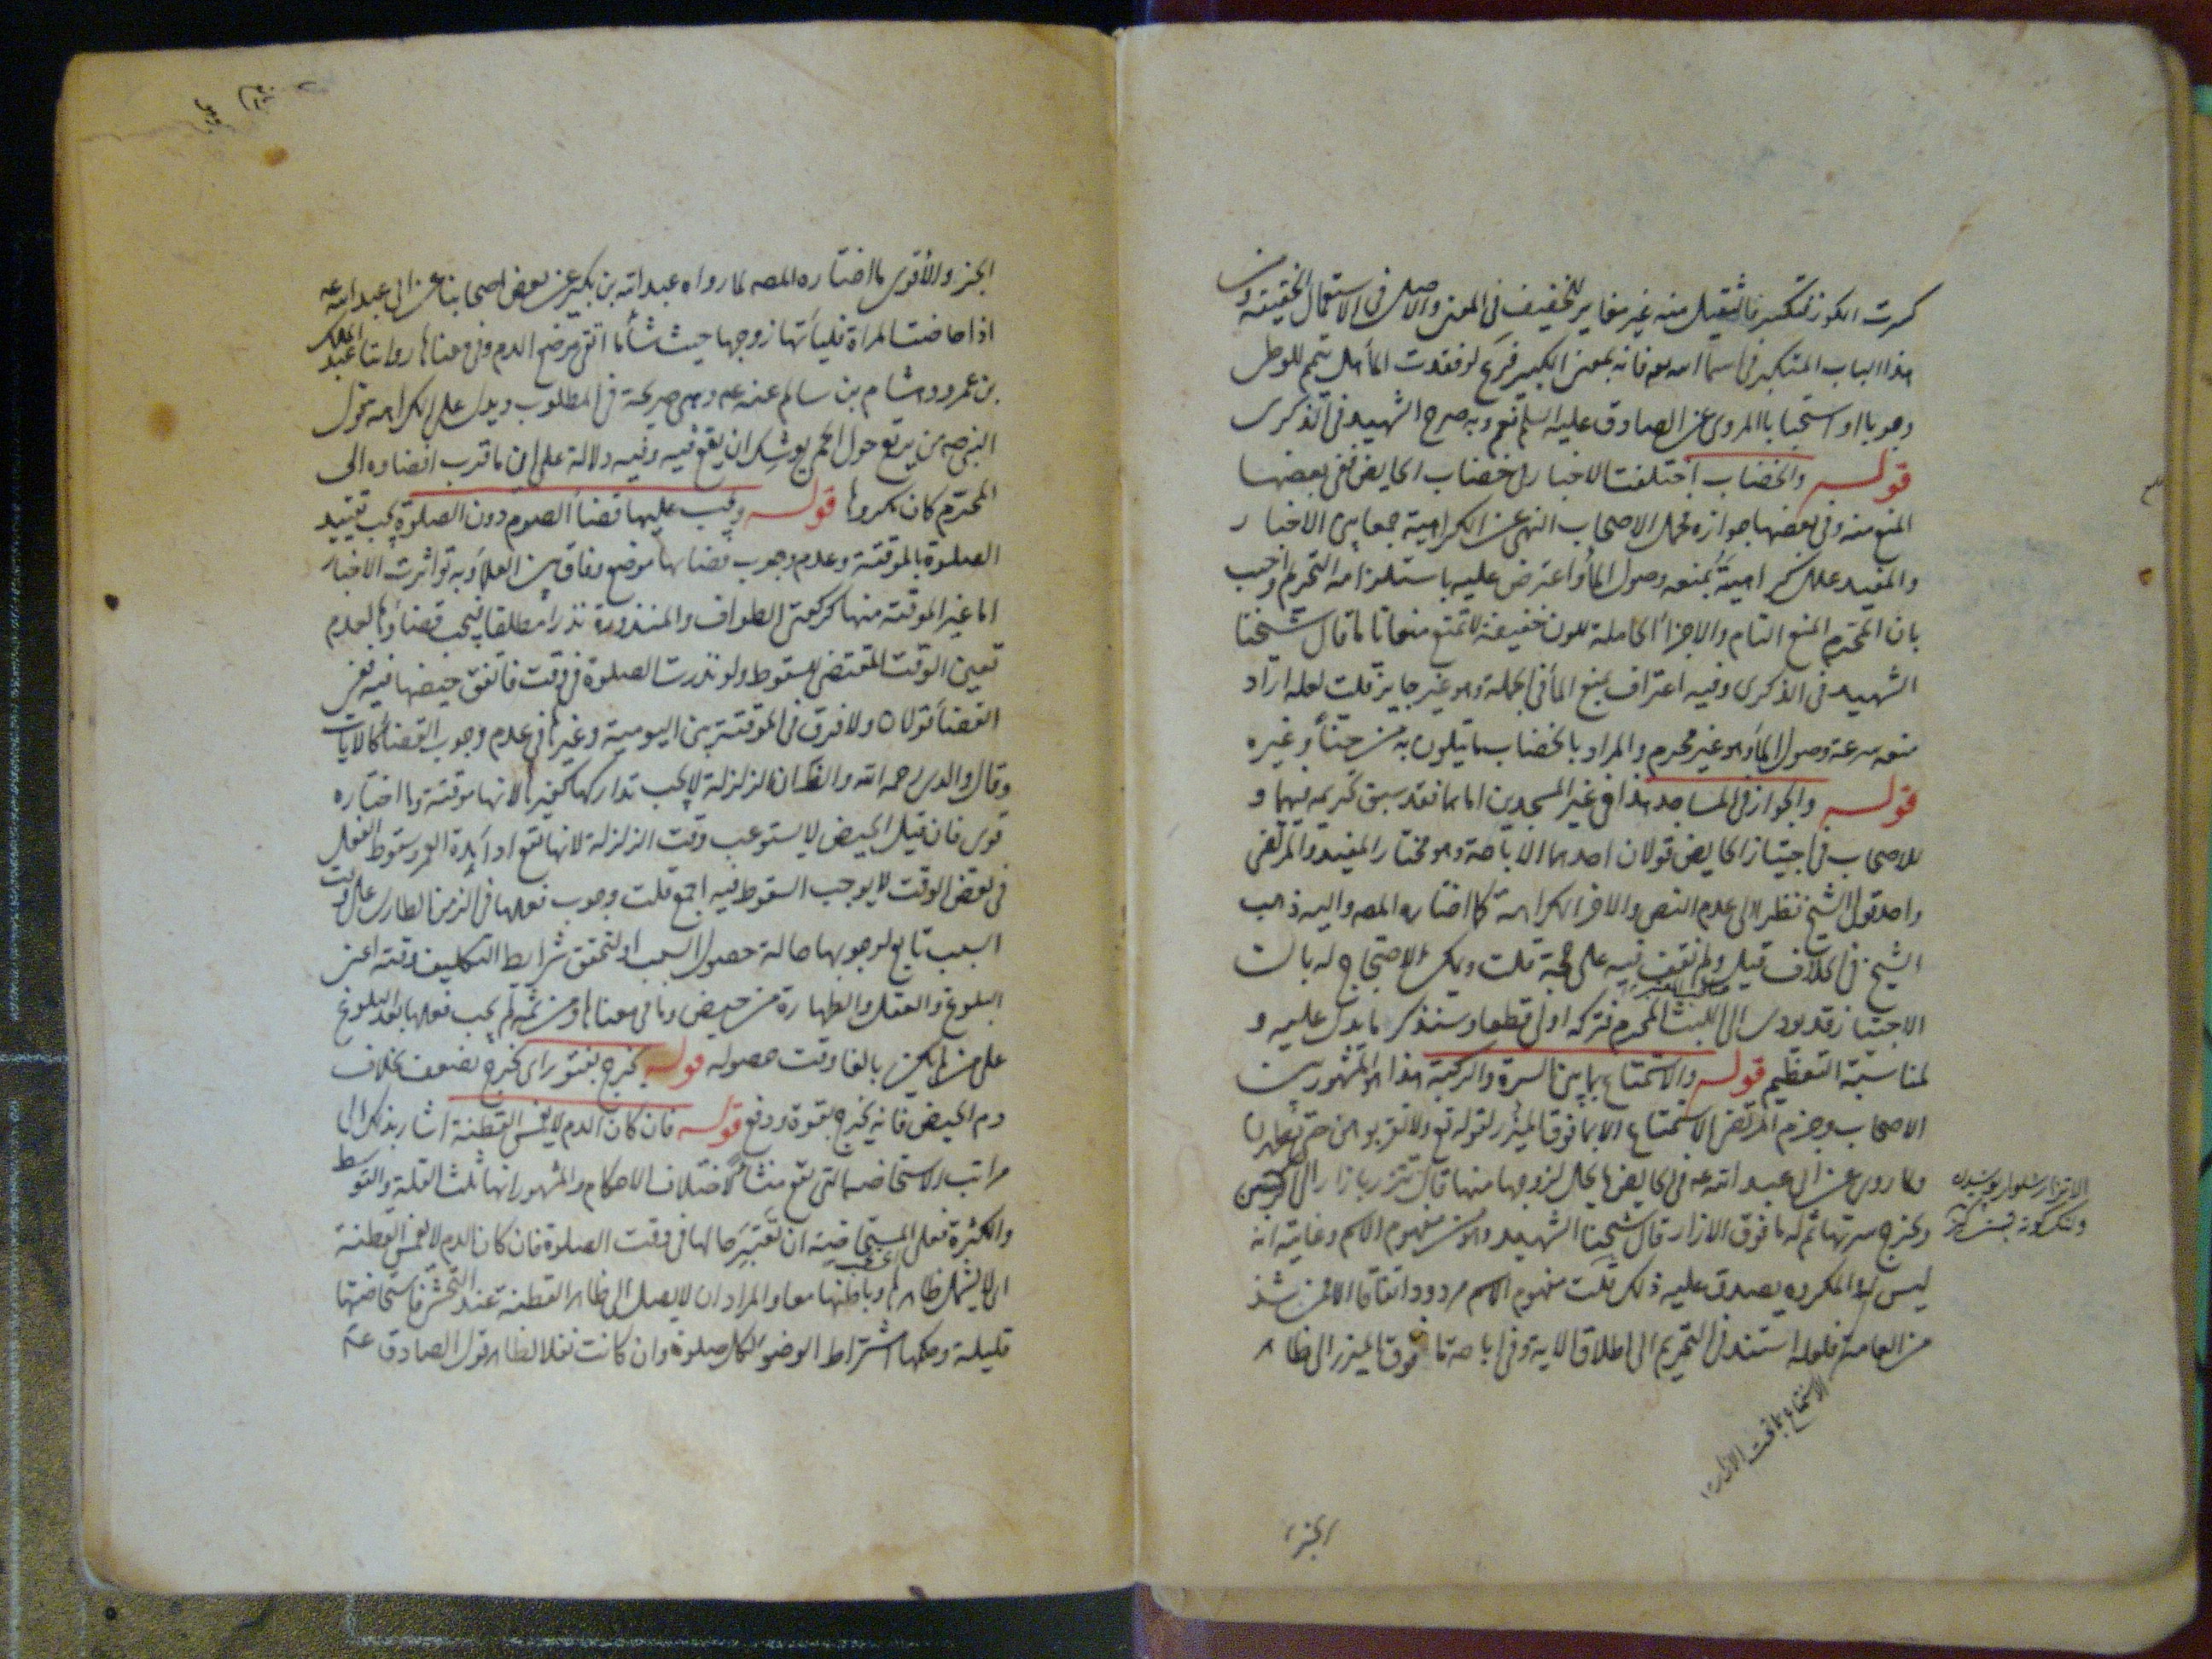 كسرت الكوز فتكسر فالثقيل منه غير مغاير للخفيف في المعنى والاصل في الاستعمال الحقيقة ومن
هذا الباب المتكبر في اسماء الله تعم فانه بمعنى الكبير فرع لو فقدت الماء هل تيمم للوطي
وجوبا او استحبابا المروي عن الصادق عليه السلم نعم وبه صرح الشهيد في الذكرى
قوله والخضاب اختلفت الاخبار في خضاب الحايض ففي بعضها
المنع منه وفي بعضها جوازه فحمل الاصحاب النهي على الكراهية جمعا بين الاخبار
والمفيد علل كراهيته بمنعه وصول الماء واعترض عليه باستلزامه التحريم واجيب
بان المحرم المنع التام والاجزاء الحاملة للون خفيفة لا تمنع منعا تاما قال شيخنا
الشهيد في الذكرى وفيه اعتراف بمنع الماء في الجملة وهو غير جايز قلت لعله اراد
منعه سرعة وصول الماء وهو غير محرم والمراد بالخضاب ما يتلون به من حناء وغيره
قوله والجواز في المساجد هذا في غير المسجدين اما هما فقد سبق تحريمه فيهما و
للاصحاب في اجتياز الحايض قولان احدهما الاباحة وهو مختار المفيد والمرتضى
واحد قولي الشيخ نظرا الى عدم النص والاخر الكراهة كما اختاره المصه واليه ذهب
الشيخ في الخلاف قيل ولم نقف فيه على حجة قلت ويمكن الاحتجاج له بان
الاجتياز قد يودي الى اللبث المحرم فتركه اولى قطعا وسنذكر ما يدل عليه و
لمناسبة التعظيم قوله والاستمتاع بما بين السرة والركبة هذا هو المشهور بين
الاصحاب وحرم المرتضى الاستمتاع الا بما فوق الميزر لقوله تع ولا تقربوهن حتى يطهرن
ولما روي عن ابي عبد الله عه في الحايض ما يحل لزوجها منها قال تتزر بازار الى الركبتين
وتخرج سرتها ثم له ما فوق الازار قال شيخنا الشهيد وهو من مفهوم الاسم وغايته انه
ليس له والمكروه يصدق عليه ذلك قلت مفهوم الاسم مردود اتفاقا الا ممن شذ
من العامة فلعله استند في التحريم الى اطلاق الاية وفي اباحة ما فوق الميزر الى ظاهر
الاستمتاع بما تحت الازار
الخبر
الخبر والاقوى ما اختاره المصه لما رواه عبد الله بن بكير عن بعض اصحابنا عن ابي عبد الله عه
اذا حاضت المراة فلياتها زوجها حيث شاء ما اتقى موضع الدم وفي معناها روايتا عبد الملك
بن عمرو وهشام بن سالم عنه عه وهي صريحة في المطلوب ويدل على الكراهه قول
النبي صه من يرتع حول الحمى يوشك ان يقع فيه وفيه دلالة على ان ما قرب افضاوه الى
المحرم كان مكروها قوله ويجب عليها قضاء الصوم دون الصلوة يجب تقييد
الصلوة بالموقتة وعدم وجوب قضاها موضع وفاق بين العلماء وبه تواترت الاخبار
اما غير الموقتة منها كركعتي الطواف والمنذورة نذرا مطلقا فيجب قضاوها لعدم
تعيين الوقت المقتضي للسقوط ولو نذرت الصلوة في وقت فاتفق حيضها فيه ففي
القضاء قولان ولا فرق في الموقتة بين اليومية وغيرها في عدم وجوب القضاء كالايات
وقال والدي رحمه الله والظ ان الزلزلة لا يجب تداركها كغيرها لانها موقتة وما اختاره
قوي فان قيل الحيض لا يستوعب وقت الزلزلة لانها تقع اداء مدة العمر وسقوط الفعل
في بعض الوقت لا يوجب السقوط فيه اجمع قلت وجوب فعلها في الزمن الطاري على وقت
السبب تابع لوجوبها حالة حصول السبب او لتحقق شرايط التكليف وقته اعني
البلوغ والعقل والطهارة من حيض وما في معناها ومن ثم لم يجب فعلها بعد البلوغ
على من لم يكن بالغا وقت حصوله قوله يخرج بفتور اي يخرج بضعف بخلاف
دم الحيض فانه يخرج بقوة ودفع قوله فان كان الدم لا يغمس القطنة اشار بذلك الى
مراتب الاستحاضة التي تقع منشاء لاختلاف الاحكام والمشهور انها ثلث القلة والتوسط
والكثرة فعلى المستحاضة ان تعتبر حالها في وقت الصلوة فان كان الدم لا يغمس القطنة
اي لا يشمل ظاهرها وباطنها معا والمراد ان لا يصل الى ظاهر القطنة عند التحشي فاستحاضتها
قليلة وحكمها اشتراط الوضوء لكل صلوة وان كانت نفلا لظاهر قول الصادق عه